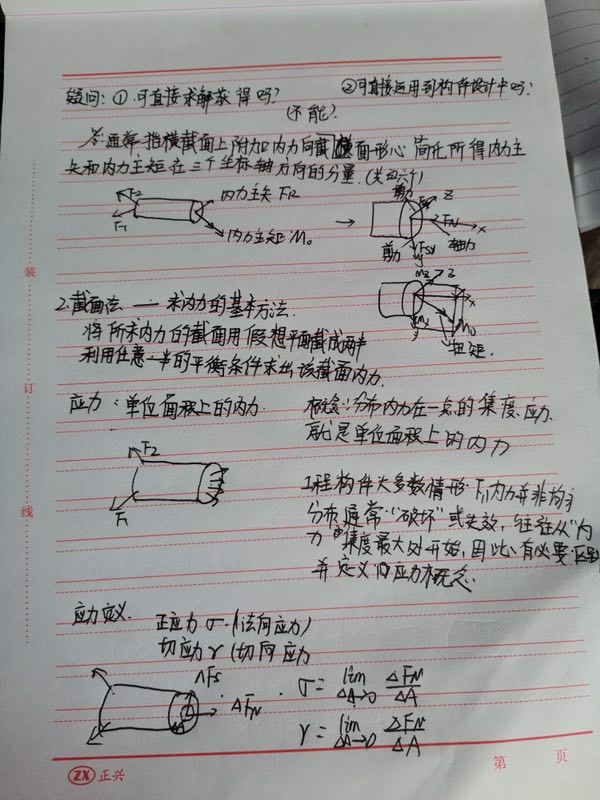 疑问: ① 可直接求解获得吗? ②可直接运用到构件设计中吗?
(不能?)
答:通常指横截面上附加内力向截面形心简化所得内力主
矢和内力主矩在三个坐标轴方向的分量.(共六个)
F2 内力主矢 FR 剪力 Z
F1 FN x
内力主矩:M。 剪力 FSy 轴力
y
2.截面法 — 求内力的基本方法. Mz Z
将所求内力的截面用假想平面截成两半 x
利用任意一半的平衡条件求出该截面内力. y 扭矩.
应力:单位面积上的内力. 概念:分布内力在一点的集度.应力.
就是单位面积上的内力
F2
F1
工程构件大多数情形.内力并非均匀
分布通常“破坏”或失效,往往从“内
力”集度最大处开始,因此,有必要区别
并定义应力概念.
应力定义. 正应力 σ.(法向应力)
切应 γ (切向应力
ΔFs
ΔFN
ΔA
σ= lim ΔA→0 ΔFN/ΔA
γ= lim ΔA→0 ΔFN/ΔA
装
订
线
ZX 正兴
第 页